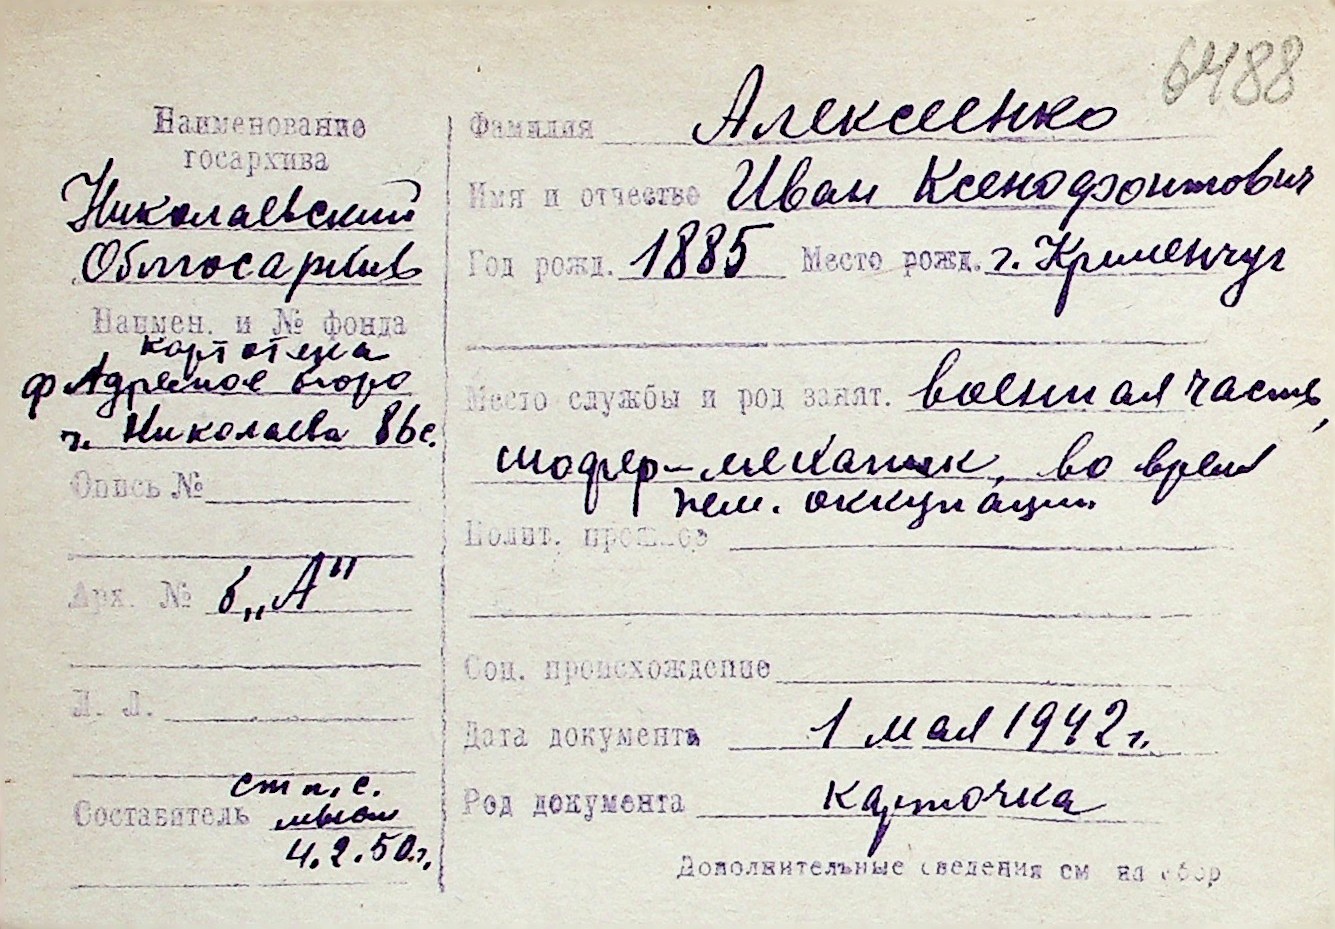 6488
Наименование
госархива
Николаевский
Облгосархив
Наимен. и № фонда
картотека
ф Адресное бюро
г. Николаева 86с.
Опись №
Арх. № б„А"
Л. Л.
Составитель
4.2.50.г.
Фамилия Алексеенко
Имя и отчество Иван Ксенофонтович
Год рожд. 1885 Место рожд. г. Кременчуг
Место службы и род занят. военная часть,
шофер-механик, во время
нем. оккупации
Полит. прошлое
Соц. происхождение
Дата документа 1 мая 1942 г.
Род документа карточка
Дополнительные сведения см на обор